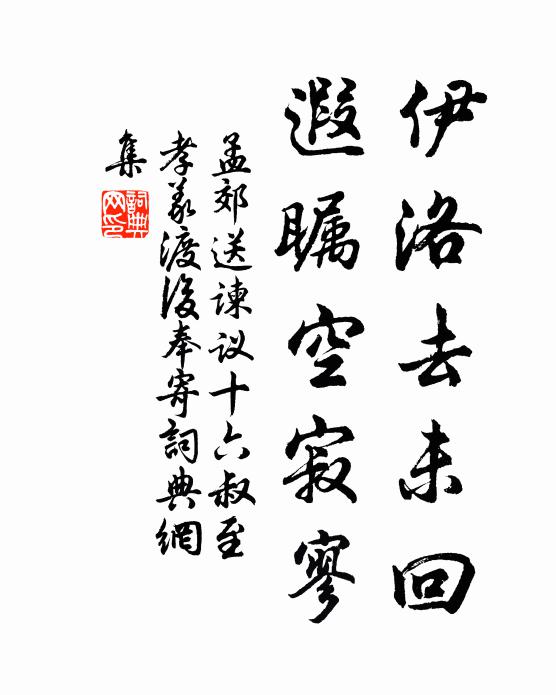 伊洛去未回
遐瞩空寂寥
孟郊送谏议十六叔至
孝义渡后奉寄詞典網
集
詞典网印